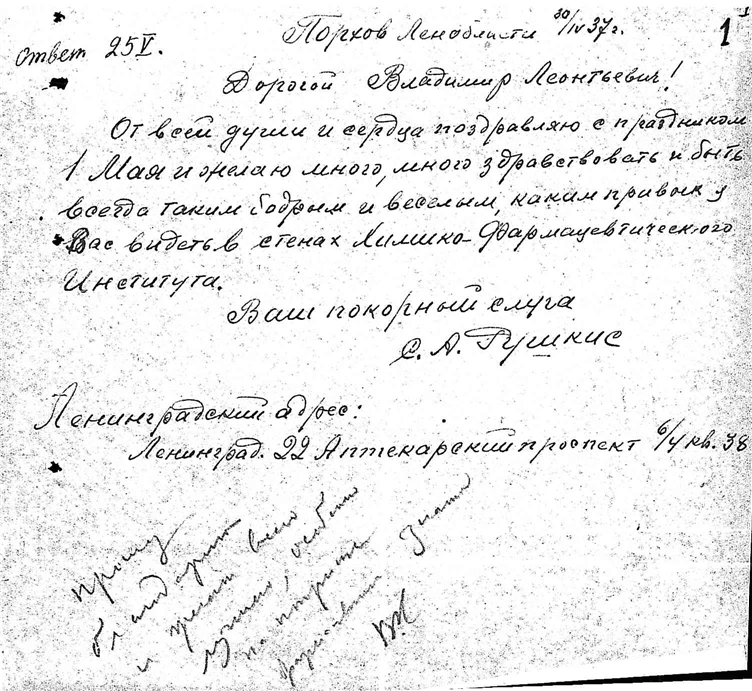 1
Ответ 25 V.
Порхов Ленобласти 30/IV 37 г.
Дорогой Владимир Леонтьевич!
От всей души и сердца поздравляю с праздником
1 Мая и желаю много, много здравствовать и быть
всегда таким бодрым и веселым, каким привык я
Вас видеть в стенах Химико-Фармацевтического
Института.
Ваш покорный слуга
С. А. Гушкис
Ленинградский адрес:
Ленинград. 22 Аптекарский проспект 6/4 кв. 38
Прошу
благодарю
и желаю всего
лучшего, особенно
ВК